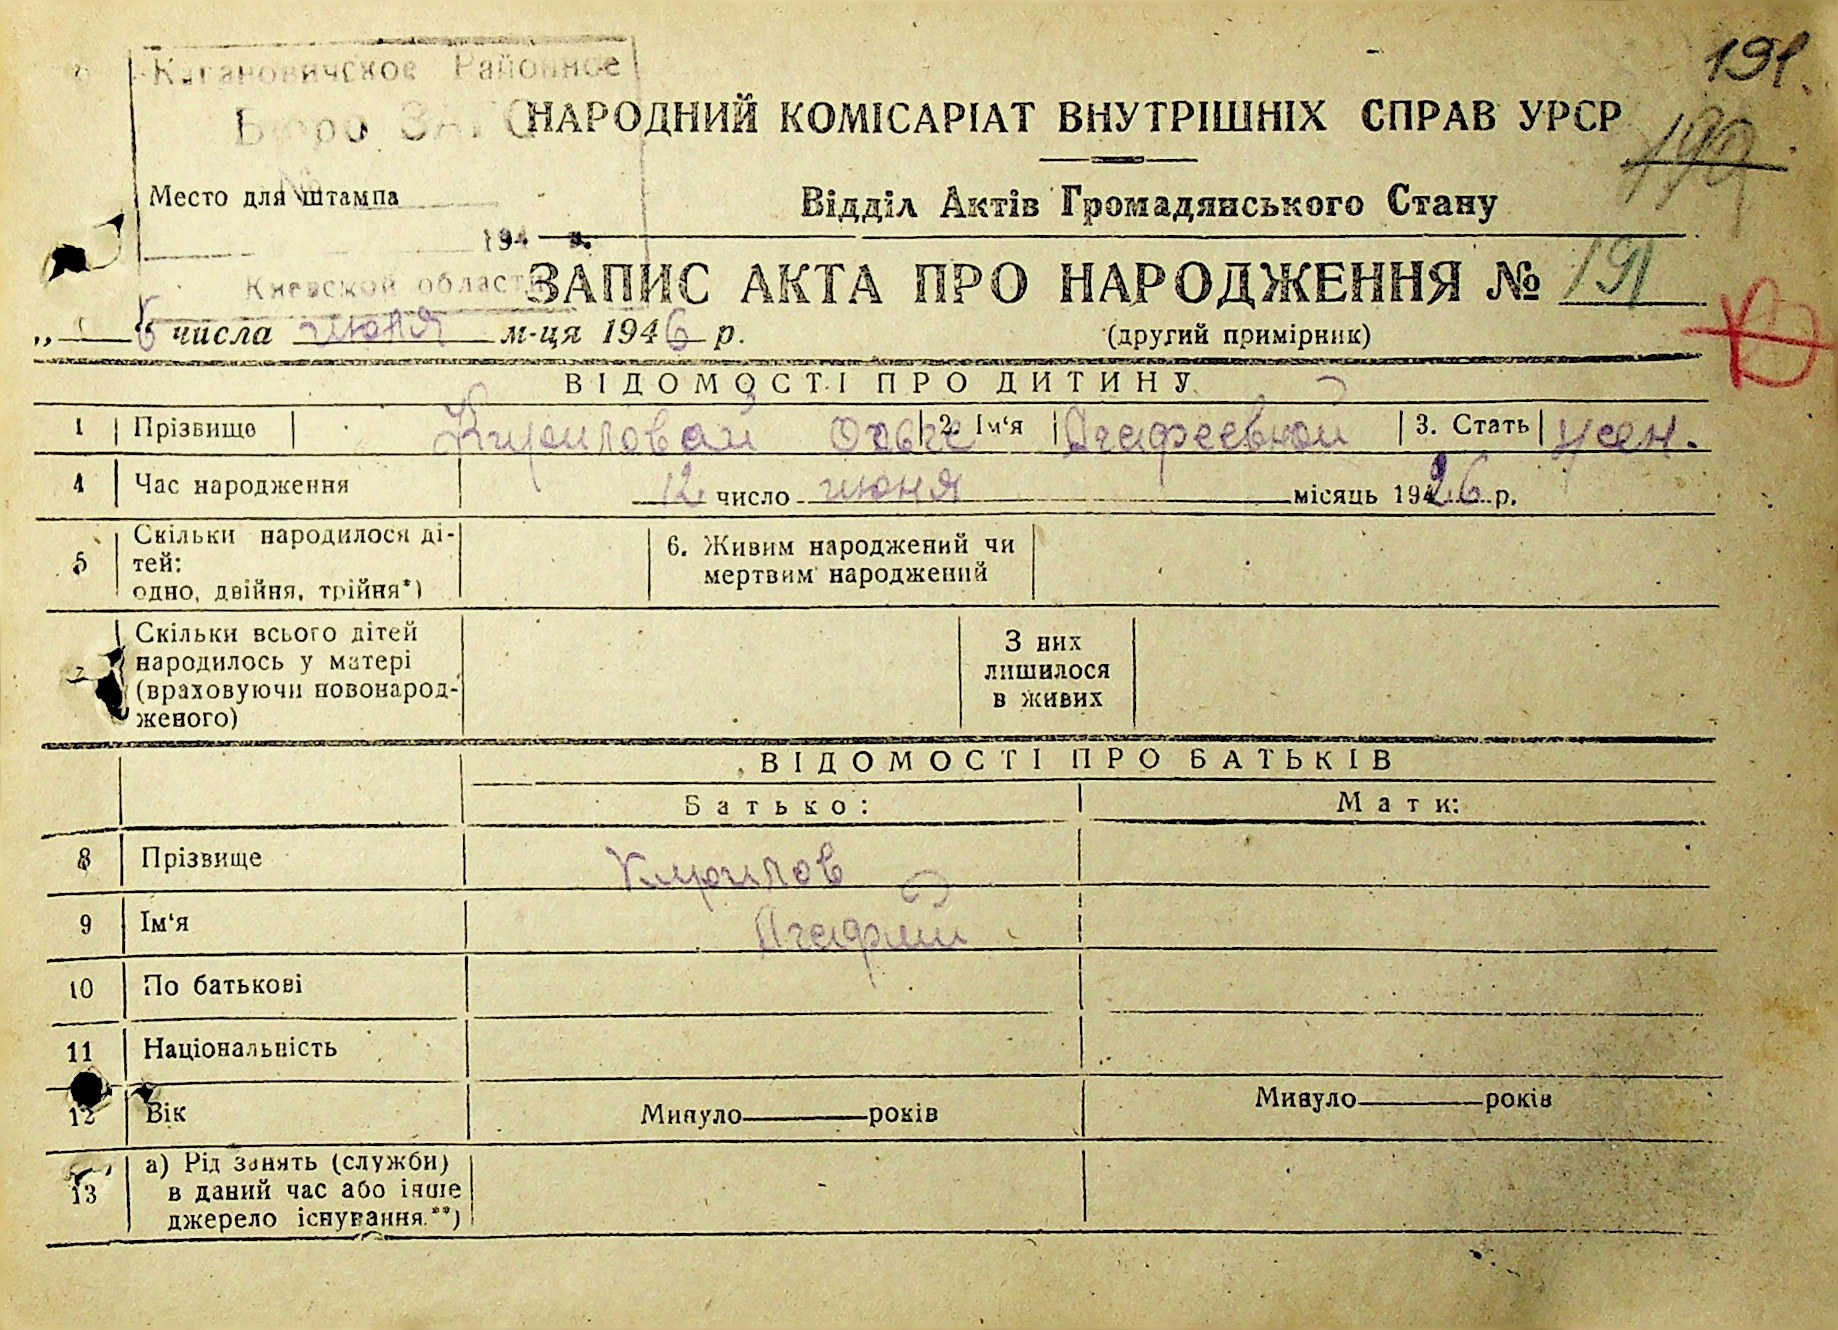 191.
199
Кагановичское Районное
Бюро ЗАГС
НАРОДНИЙ КОМІСАРІАТ ВНУТРІШНІХ СПРАВ УРСР
Место для штампа
Відділ Актів Громадянського Стану
194 г.
Киевской области
ЗАПИС АКТА ПРО НАРОДЖЕННЯ № 191
„ 6 “ числа июня м-ця 1946 р.
(другий примірник)
ВІДОМОСТІ ПРО ДИТИНУ
1 Прізвище Кириловай Ользе 2. Ім‘я Агафеевной 3. Стать жен.
4 Час народження 12 число июня місяць 1926 р.
5 Скільки народилося ді-
тей:
одно, двійня, трійня*)
6. Живим народжений чи
мертвим народжений
7 Скільки всього дітей
народилось у матері
(враховуючи новонарод-
женого)
З них
лишилося
в живих
ВІДОМОСТІ ПРО БАТЬКІВ
Батько: Мати:
8 Прізвище Кирилов
9 Ім‘я Агафий
10 По батькові
11 Національність
12 Вік Минуло років Минуло років
13 а) Рід занять (служби)
в даний час або інше
джерело існування.**)